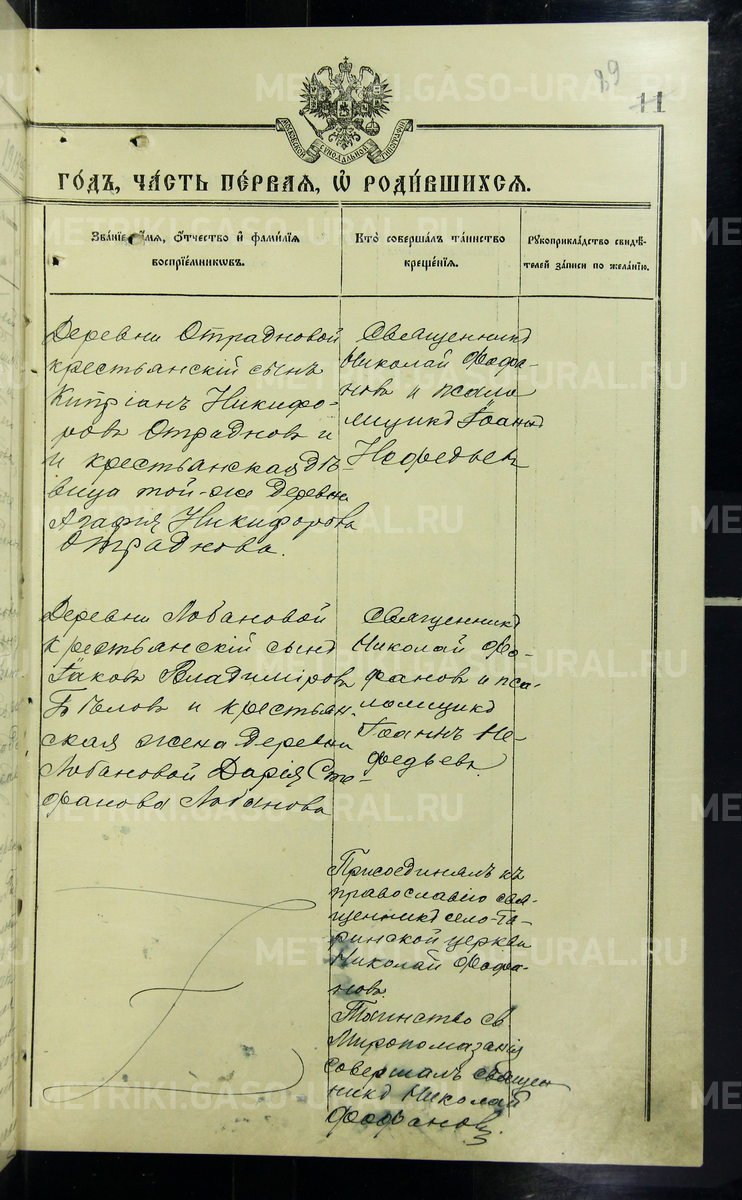 89
11
МОСКОВСКОЙ СѴНОДАЛЬНОЙ ТИПОГРАФІИ
ГО́ДЪ, ЧА́СТЬ ПЕ́РВАЯ, Ѡ҆ РОДИ́ВШИХСЯ.
Зва́нїе, и҆́мя, ѻ҆́тчество и҆ фами́лїя
воспрїе́мникѡвъ.
Кто̀ соверша́лъ та́инство
креще́нїя.
Рꙋкоприкла́дство свидѣ́-
телей за́писи по жела́нїю.
Деревни Отрадновой
крестьянскій сынъ
Кипріанъ Никифо-
ровъ Отрадновъ и
и крестьянская дѣ-
вица той-же деревни
Агафія Никифорова
Отраднова.
Священникъ
Николай Фофа-
новъ и псало
мщикъ Іоаннъ
Нефедьевъ
Деревни Лобановой
крестьянскій сынъ
Іаковъ Владиміровъ
Бѣловъ и крестьян-
ская жена деревни
Лобановой Дарія Сте-
фанова Лобанова
Священникъ
Николай Фо-
фановъ и пса-
ломщикъ
Іоаннъ Не-
федьевъ.
Присоединялъ къ
православію свя-
щенникъ село-Та-
ринской церкви
Николай Фофа-
новъ.
Таинство св.
Мѵропомазанія
совершалъ священ
никъ Николай
Фофановъ.
METRIKI.GASO-URAL.RU